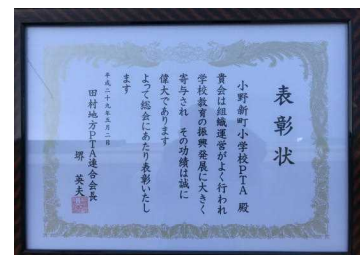 表彰状
小野新町小学校PTA 殿
貴会は組織運営がよく行われ
学校教育の振興発展に大きく
寄与され その功績は誠に
偉大であります
よって総会にあたり表彰いたし
ます
平成二十九年五月二日
田村地方PTA連合会長
堺 英夫